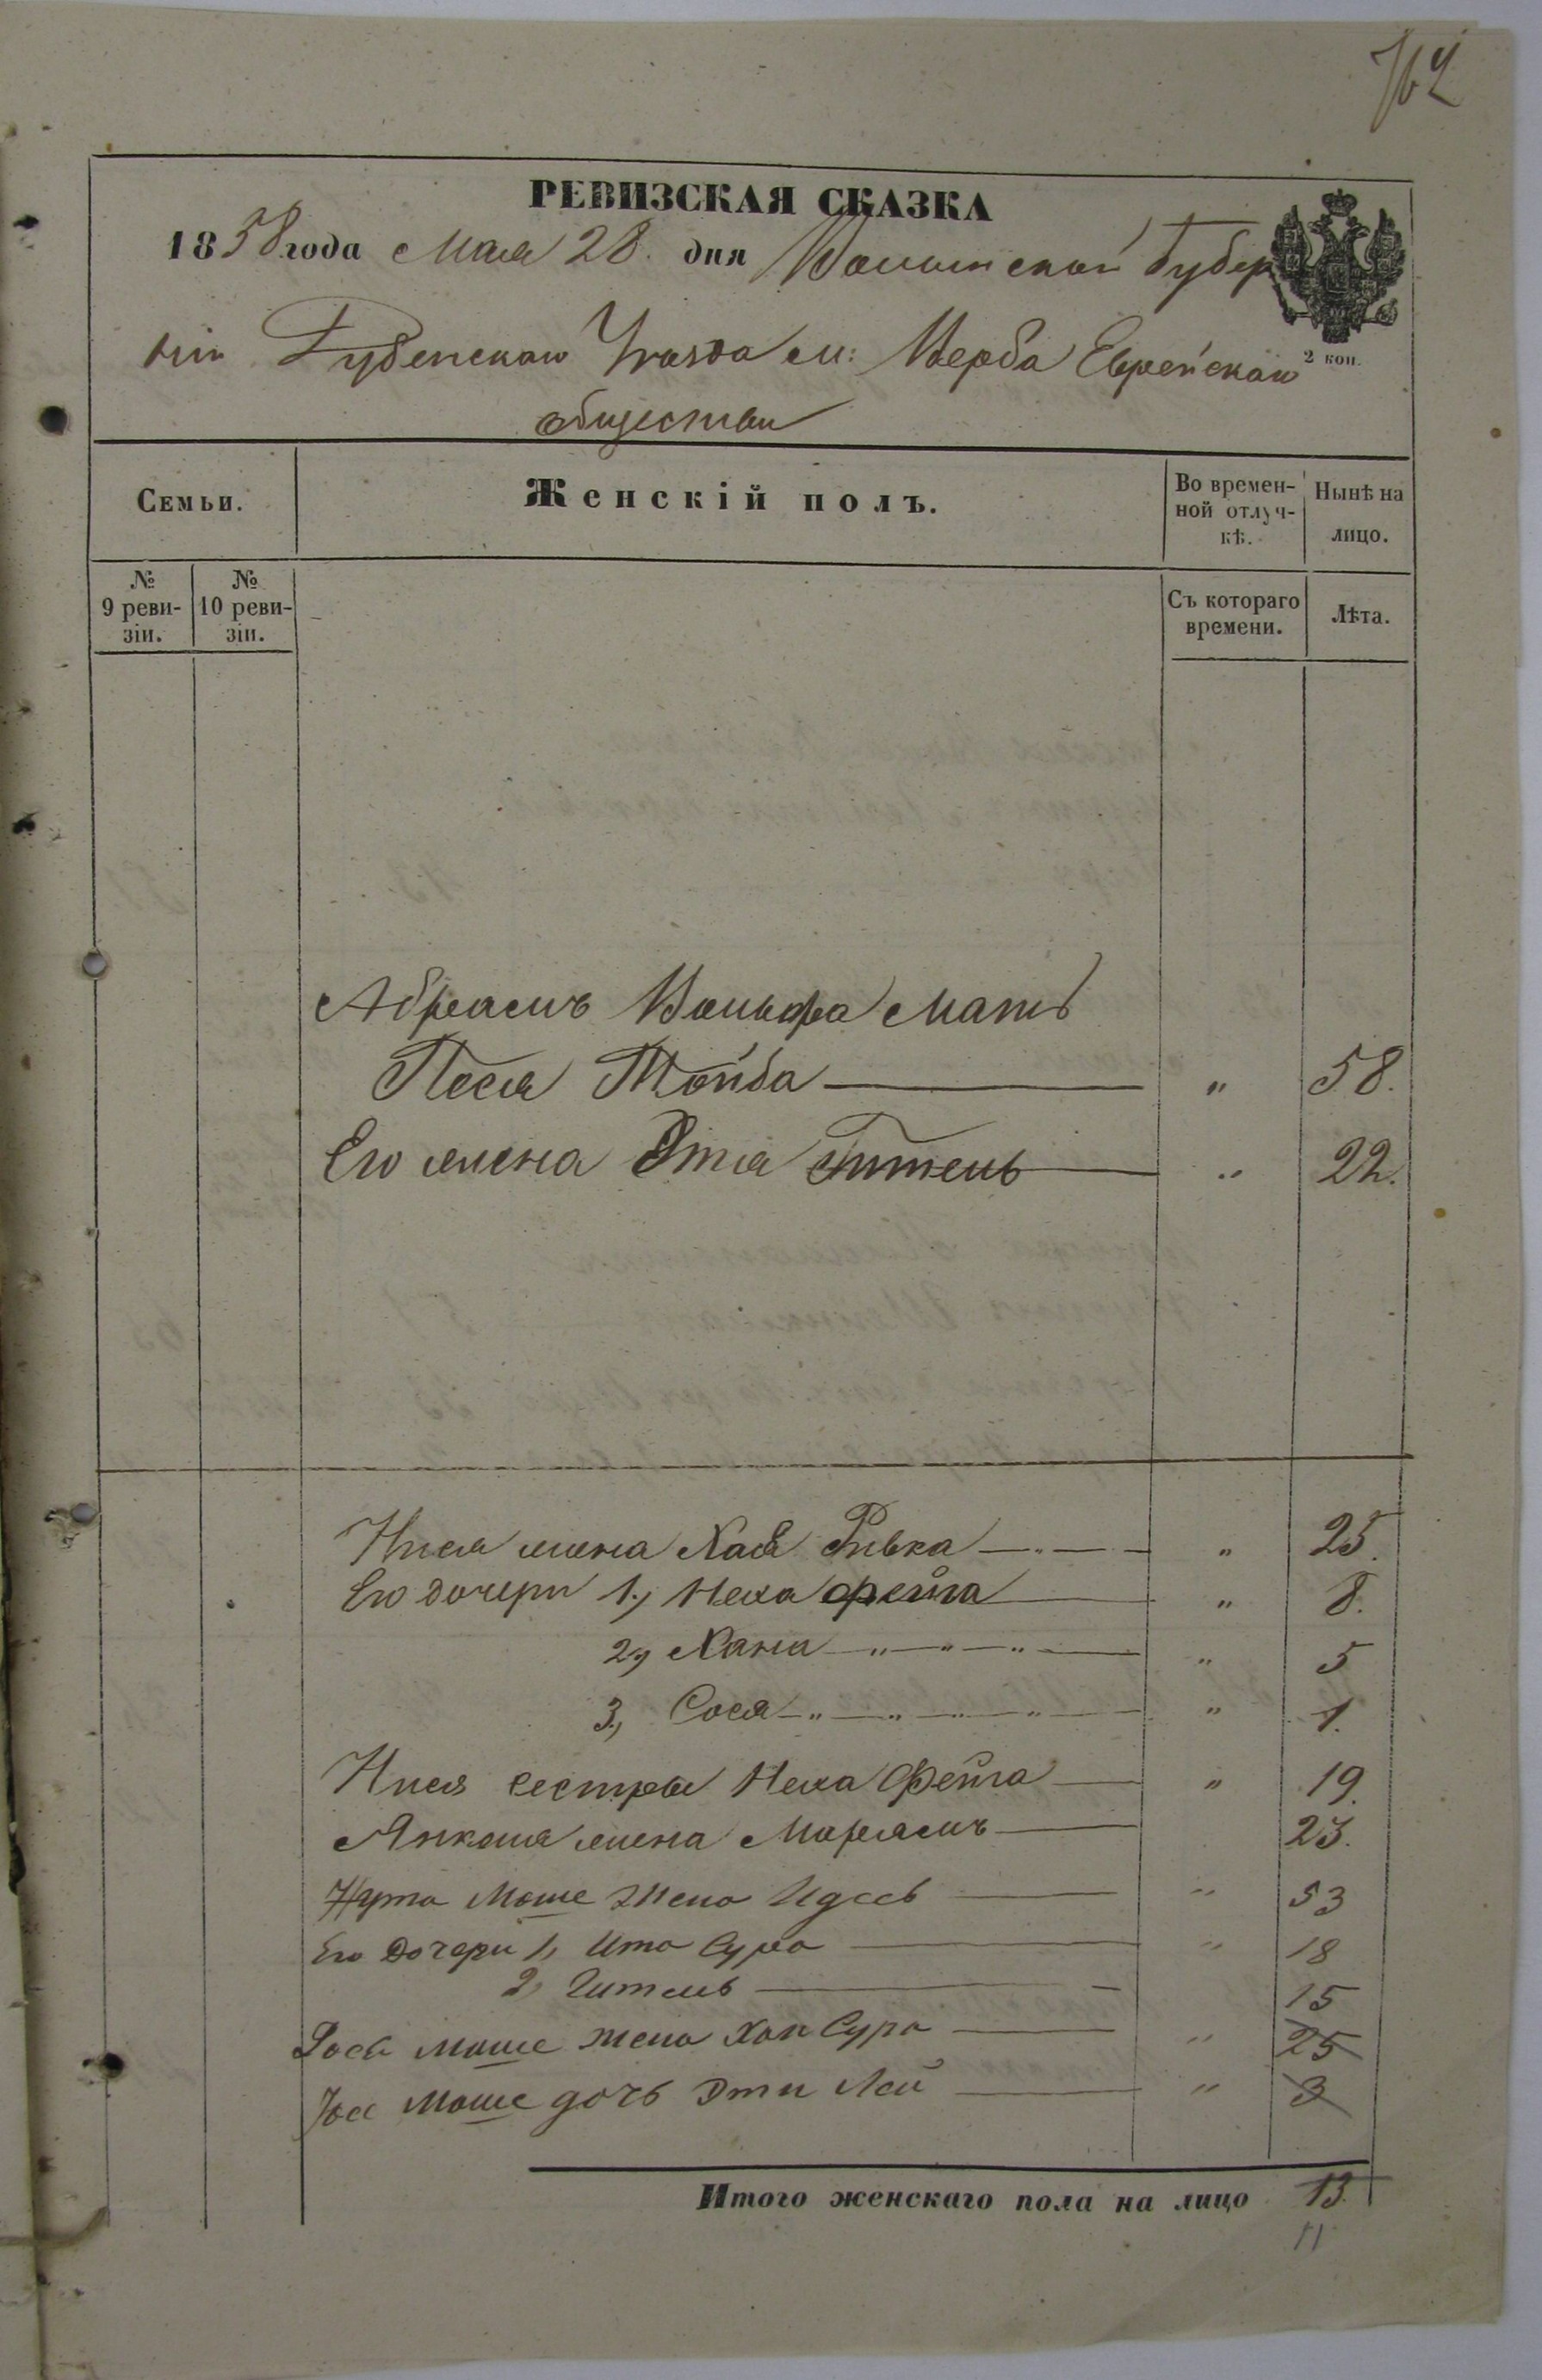 РЕВИЗСКАЯ СКАЗКА
1858 года Мая 28. дня Волынской Губер
ніи Дубенскаго Уѣзда м: Верба Еврейскаго
2 коп.
общества
Семьи.
Женскій полъ.
Во времен-
ной отлуч-
кѣ.
Нынѣ на
лицо.
№
9 реви-
зіи.
№
10 реви-
зіи.
Съ котораго
времени.
Лѣта.
Абрамъ Вольфа мать
Песя Тойба — „ 58.
Его жена Этя Гитель — „ 22.
жена Хая Ривка — „ 25.
Его дочери 1., Неха Фейга — „ 8.
2., Хана — „ 5
3., Сося — „ 1.
сестра Неха Фейга — „ 19.
Янкеля жена Марьямъ — 23.
Нута Моше Жена Идесь — „ 53
Его Дочери 1, Ита Сура — „ 18
2, Гитель — 15
Моше жена Хая Сура — „ 25
Моше дочь Эти Лея — „ 3
Итого женскаго пола на лицо 13.
11